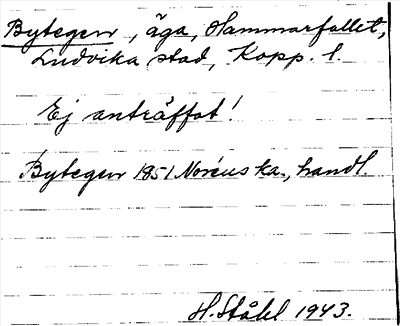 Bytegen, äga, Hammarfallet,
Ludvika stad, Kopp. l.
Ej anträffat!
Bytegen 1851 Noréus ka., handl.
H. Ståhl 1943.